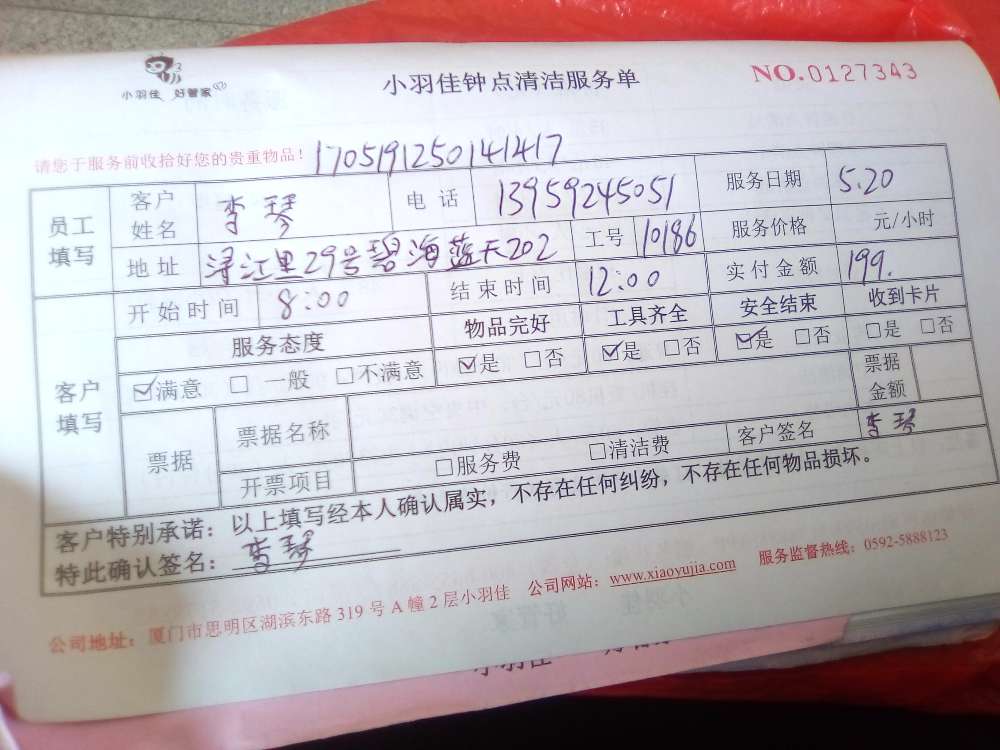 小羽佳 好管家
小羽佳钟点清洁服务单
NO.0127343
请您于服务前收拾好您的贵重物品！1705191250141417
员工填写 客户姓名 李琴 电话 13959245051 服务日期 5.20
地址 浔江里29号碧海蓝天202 工号 10186 服务价格 元/小时
客户填写 开始时间 8:00 结束时间 12:00 实付金额 199.
服务态度 物品完好 工具齐全 安全结束 收到卡片
☑满意 □ 一般 □不满意 ☑是 □否 ☑是 □否 ☑是 □否 □是 □否
票据 票据名称 票据金额
开票项目 □服务费 □清洁费 客户签名 李琴
客户特别承诺：以上填写经本人确认属实，不存在任何纠纷，不存在任何物品损坏。
特此确认签名：李琴
公司地址：厦门市思明区湖滨东路319号A幢2层小羽佳 公司网站：www.xiaoyujia.com 服务监督热线：0592-5888123
小羽佳